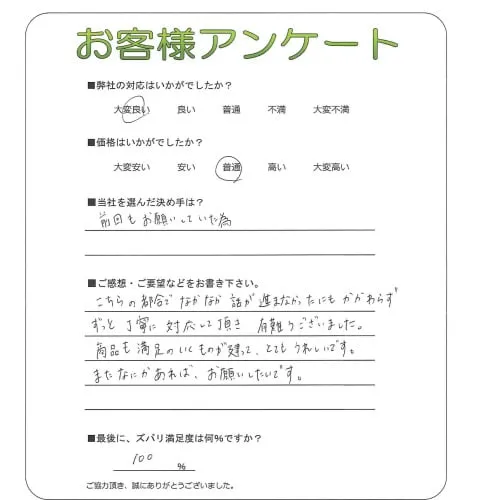 お客様アンケート
■弊社の対応はいかがでしたか？
大変良い 良い 普通 不満 大変不満
■価格はいかがでしたか？
大変安い 安い 普通 高い 大変高い
■当社を選んだ決め手は？
前回もお願いしていた為
■ご感想・ご要望などをお書き下さい。
こちらの都合でなかなか話が進まなかったにもかかわらず
ずっと丁寧に対応して頂き有難うございました。
商品も満足のいくものが建って、とてもうれしいです。
またなにかあれば、お願いしたいです。
■最後に、ズバリ満足度は何%ですか？
100 %
ご協力頂き、誠にありがとうございました。